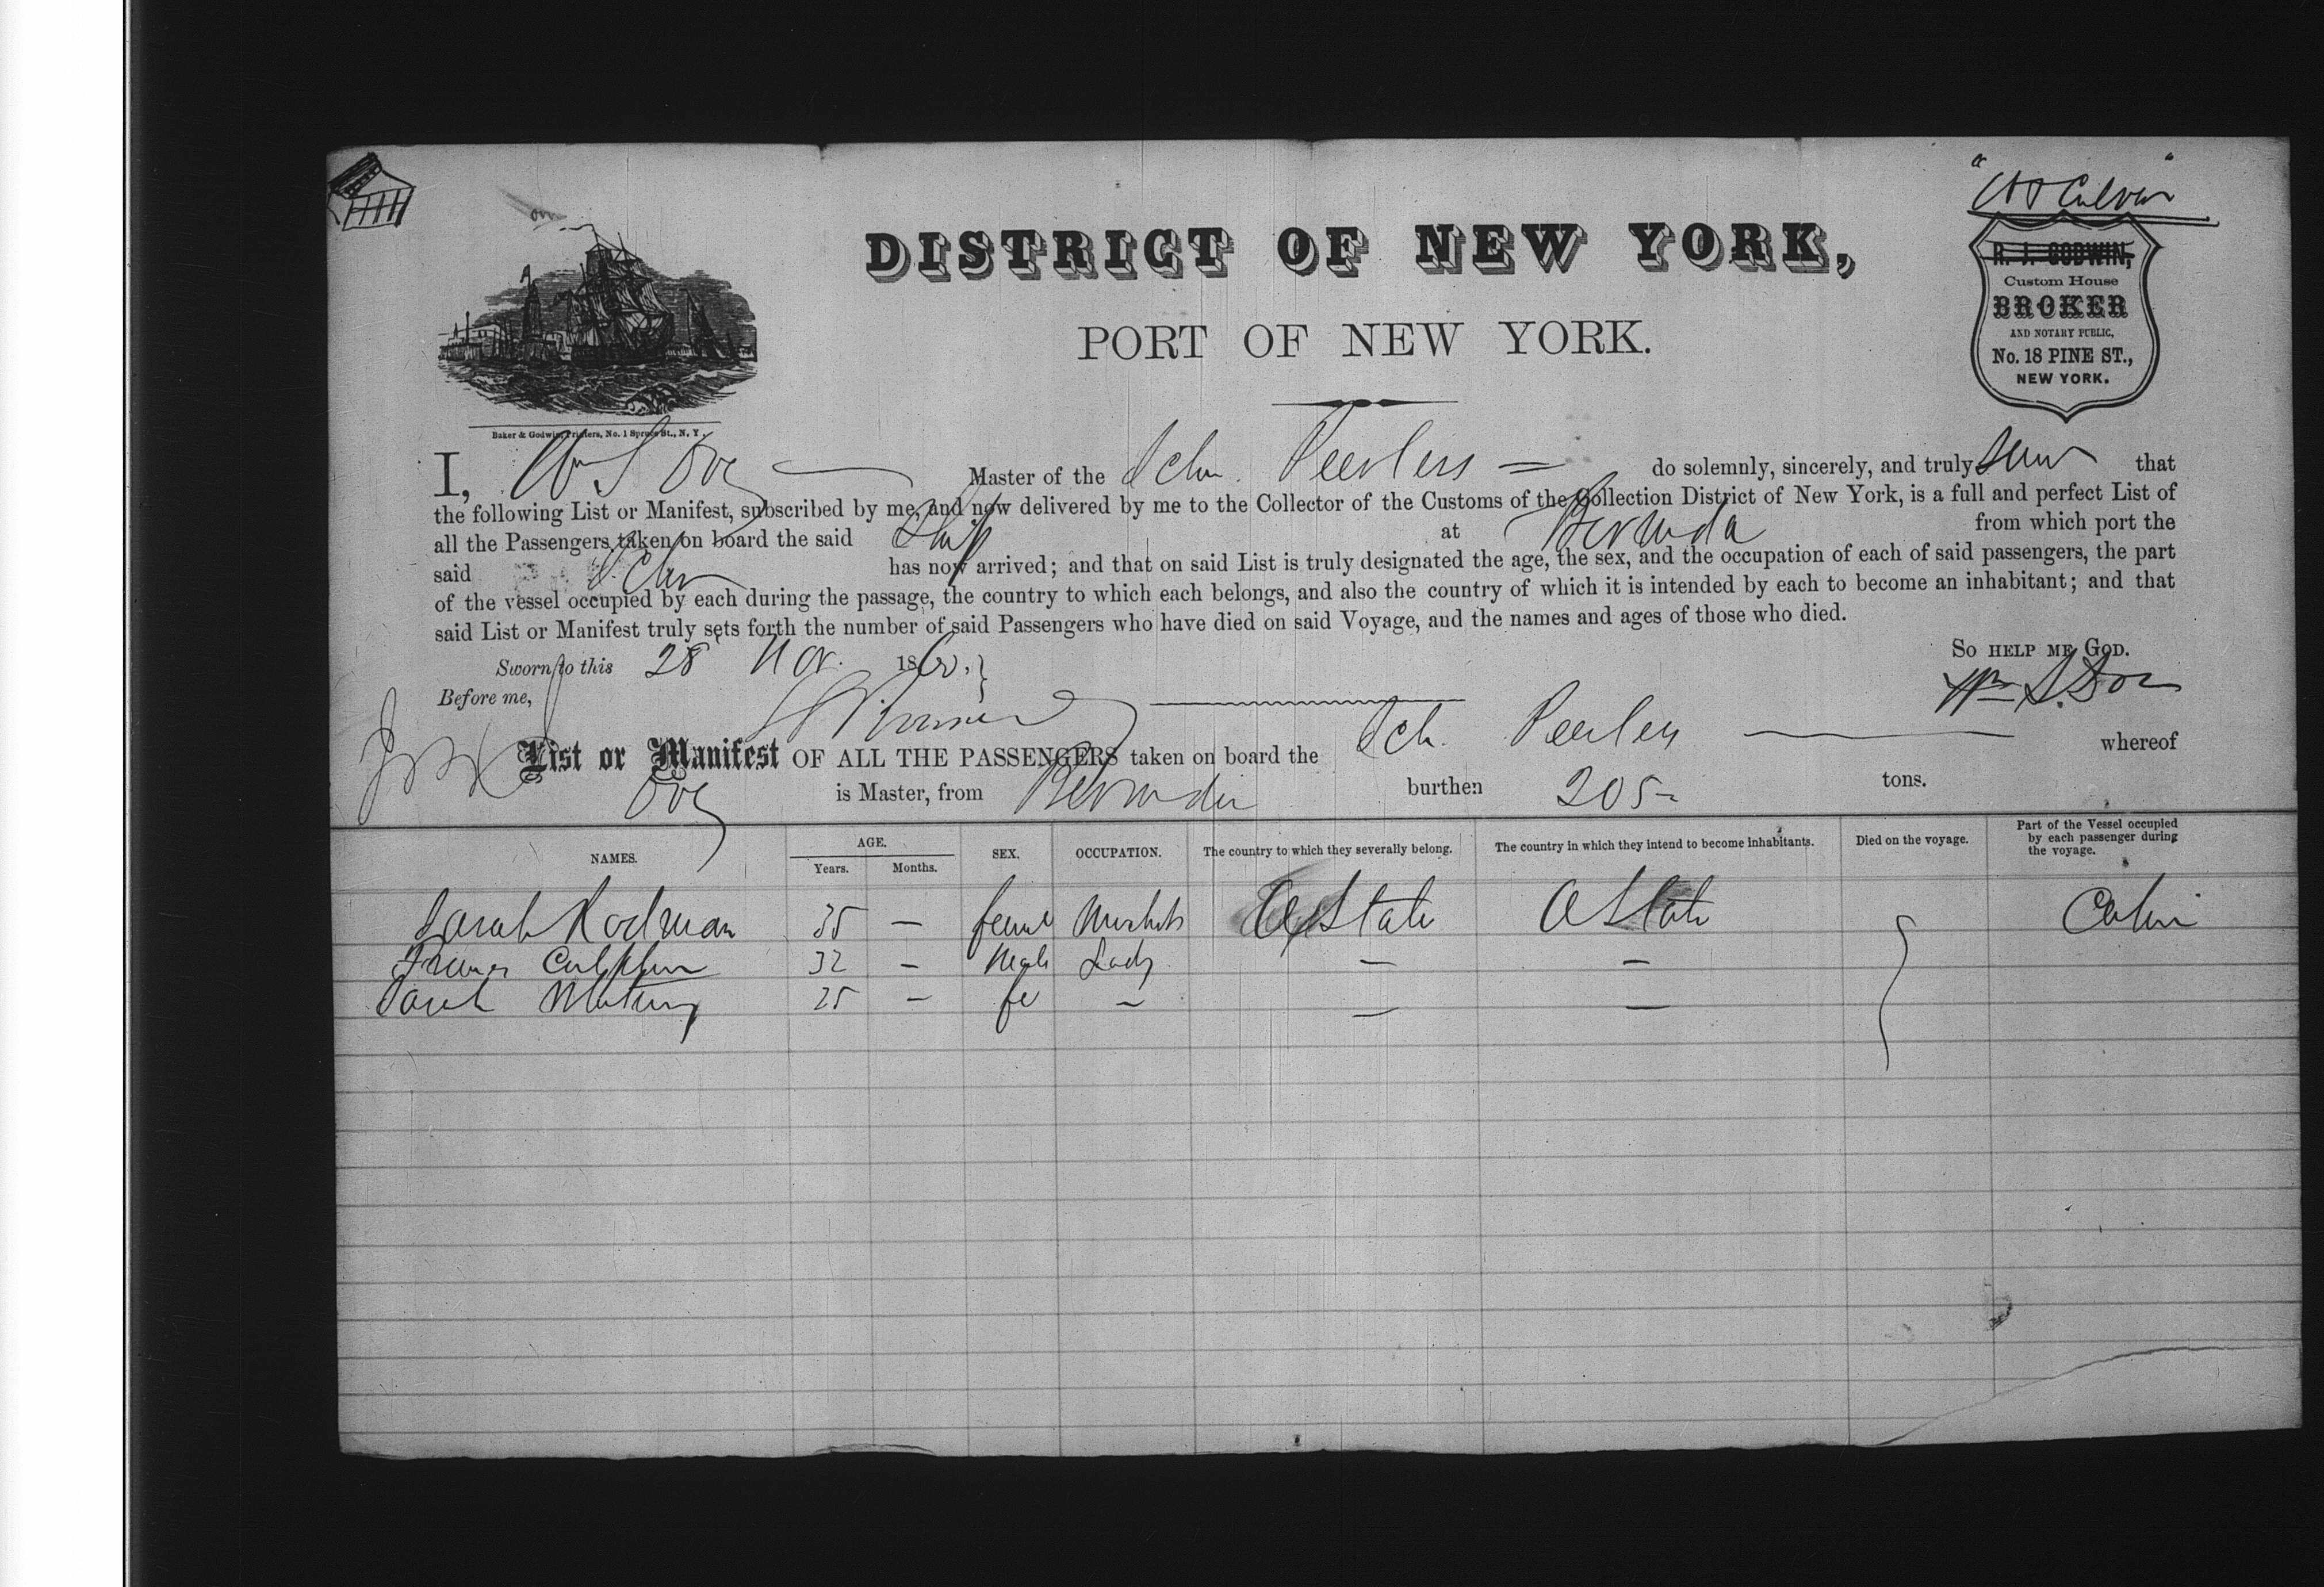 "Culver"
DISTRICT OF NEW YORK,
PORT OF NEW YORK.
R. J. GODWIN,
Custom House
BROKER
AND NOTARY PUBLIC,
No. 18 PINE ST.,
NEW YORK.
Baker & Godwin, Printers, No. 1 Spruce St., N. Y.
I, Wm S Master of the Schr. Peerless do solemnly, sincerely, and truly that
the following List or Manifest, subscribed by me, and now delivered by me to the Collector of the Customs of the Collection District of New York, is a full and perfect List of
all the Passengers taken on board the said Ship at Bermuda from which port the
said Schr has now arrived; and that on said List is truly designated the age, the sex, and the occupation of each of said passengers, the part
of the vessel occupied by each during the passage, the country to which each belongs, and also the country of which it is intended by each to become an inhabitant; and that
said List or Manifest truly sets forth the number of said Passengers who have died on said Voyage, and the names and ages of those who died.
So HELP ME GOD.
Sworn to this 28 Nov. 186
Before me,
Wm S.
List or Manifest OF ALL THE PASSENGERS taken on board the Sch. Peerless whereof
is Master, from Bermuda burthen 205 tons.
NAMES. AGE. Years. Months. SEX. OCCUPATION. The country to which they severally belong. The country in which they intend to become inhabitants. Died on the voyage. Part of the Vessel occupied by each passenger during the voyage.
Sarah Rodman 35 — State State Cabin
32 — Male Lady — —
Sarah 25 — fe — — —